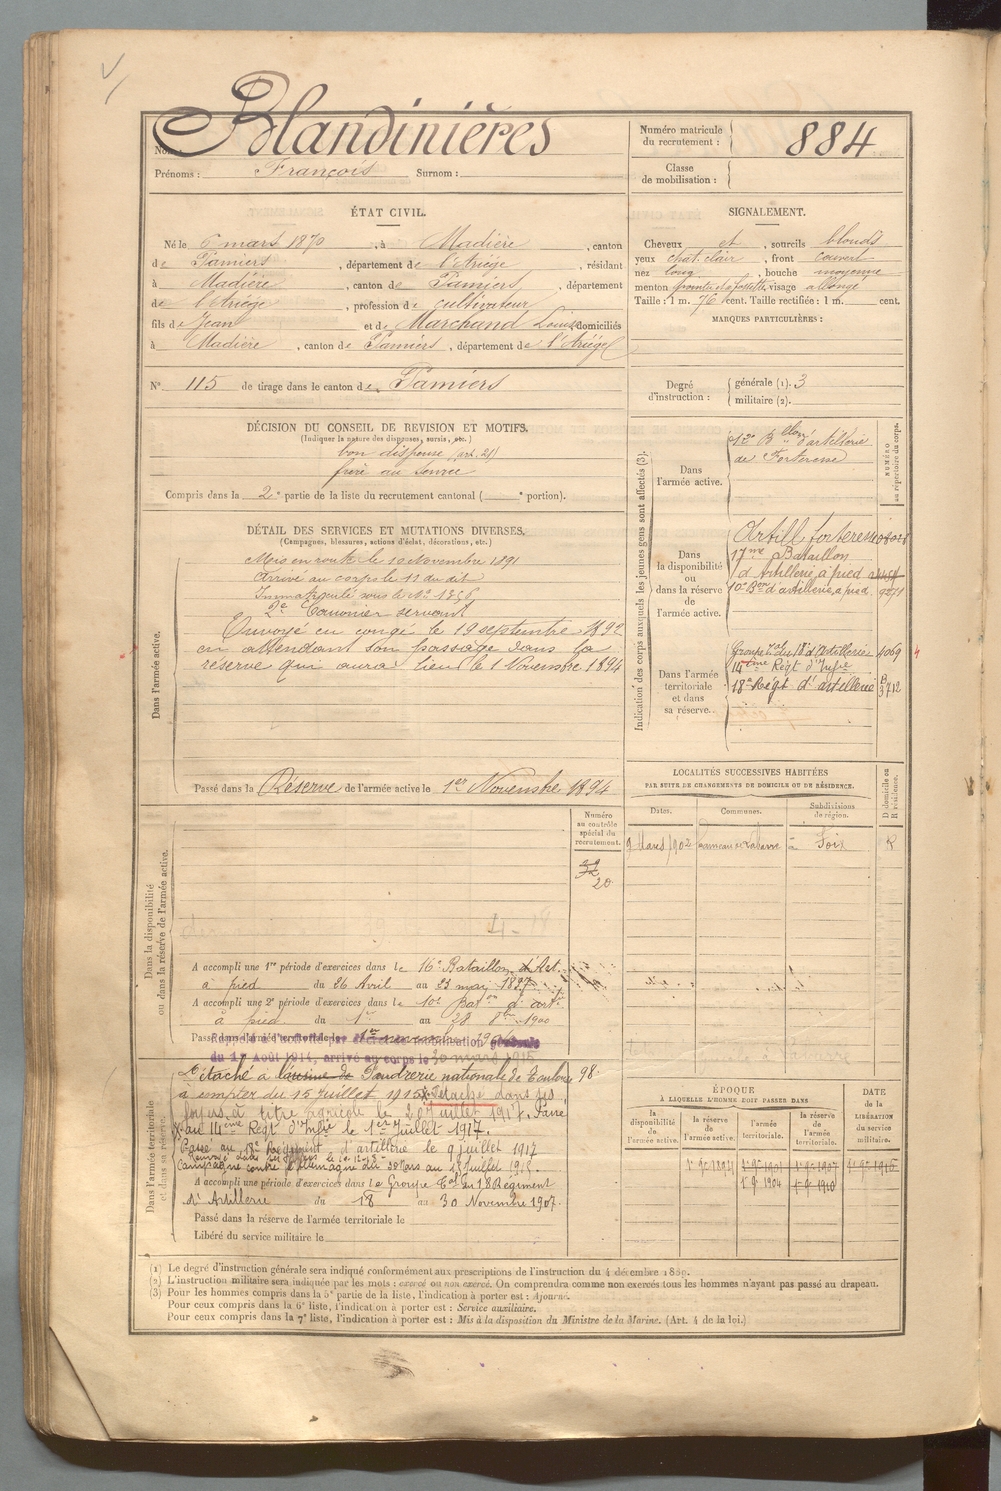 Blandinières
Nom :
Prénoms : François Surnom :
Numéro matricule du recrutement : 884
Classe de mobilisation :
ÉTAT CIVIL.
Né le 6 mars 1870, à Madière, canton
de Pamiers, département de l'Ariége, résidant
à Madière, canton de Pamiers, département
de l'Ariége, profession de cultivateur
fils de Jean et de Marchand Louize domiciliés
à Madière, canton de Pamiers, département de l'Ariége
N° 115 de tirage dans le canton de Pamiers
SIGNALEMENT.
Cheveux et, sourcils blonds
yeux chat. clair, front couvert
nez long, bouche moyenne
menton visage allongé
Taille : 1 m. 76 cent. Taille rectifiée : 1 m. cent.
MARQUES PARTICULIÈRES :
Degré d'instruction : générale (1). 3
militaire (2).
DÉCISION DU CONSEIL DE REVISION ET MOTIFS.
(Indiquer la nature des dispenses, sursis, etc.)
bon dispensé (art. 21)
frère au service
Compris dans la 2e partie de la liste du recrutement cantonal ( e portion).
DÉTAIL DES SERVICES ET MUTATIONS DIVERSES.
(Campagnes, blessures, actions d'éclat, décorations, etc.)
Dans l'armée active.
Mis en route le 10 Novembre 1891
Arrivé au corps le 11 du dit
Immatriculé sous le N° 1556
2e Canonier servant
Envoyé en congé le 19 septembre 1892
en attendant son passage dans la
réserve qui aura lieu le 1 Novembre 1894
Passé dans la Réserve de l'armée active le 1er Novembre 1894
Indication des corps auxquels les jeunes gens sont affectés (3).
NUMÉRO au répertoire du corps.
Dans l'armée active.
12e Blon d'artillerie
de Forteresse
Dans la disponibilité ou dans la réserve de l'armée active.
Artill forteresse
17me Bataillon
d'Artillerie à pied
10e Bon d'artillerie à pied 9271
Dans l'armée territoriale et dans sa réserve.
Groupe tal du 18e d'Artillerie 4069
14ème Régt d'Infie
18e Régt d'artillerie B 3712
LOCALITÉS SUCCESSIVES HABITÉES
PAR SUITE DE CHANGEMENTS DE DOMICILE OU DE RÉSIDENCE.
Dates. Communes. Subdivisions de région. D domicile ou R résidence.
9 Mars 1902 Foix R
Dans la disponibilité ou dans la réserve de l'armée active.
Numéro au contrôle spécial du recrutement.
32
20
A accompli une 1re période d'exercices dans le 16e Bataillon d'Art.
à pied du 26 Avril au 23 mai 1897
A accompli une 2e période d'exercices dans le 10e Baton d'art.
à pied du 1er au 28 8bre 1900
Passé dans l'armée territoriale le 1er novembre 1904
du 1er Août 1914, arrivé au corps le 30 mars 1915
Dans l'armée territoriale et dans sa réserve.
Détaché à l'usine de Poudrerie nationale de Toulouse 98
à compter du 15 Juillet 1915. Détaché dans ses
foyers à titre agricole le 20 Juillet 1917. Passé
au 14ème Régt d'Infie le 1er Juillet 1917.
Passé au 18e Régiment d'artillerie le 9 juillet 1917
Campagne contre l'Allemagne du 30 Mars au 15 Juillet 1915.
A accompli une période d'exercices dans le Groupe tal du 18 Régiment
d'Artillerie du 18 au 30 Novembre 1907.
Passé dans la réserve de l'armée territoriale le
Libéré du service militaire le
ÉPOQUE
À LAQUELLE L'HOMME DOIT PASSER DANS
la disponibilité de l'armée active.
la réserve de l'armée active.
l'armée territoriale.
la réserve de l'armée territoriale.
DATE de la LIBÉRATION du service militaire.
1er 9bre 1894 1er 9bre 1901 1er 9bre 1907 1er 9bre 1916
1er 9 1904 1er 9 1910
(1) Le degré d'instruction générale sera indiqué conformément aux prescriptions de l'instruction du 4 décembre 1889.
(2) L'instruction militaire sera indiquée par les mots : exercé ou non exercé. On comprendra comme non exercés tous les hommes n'ayant pas passé au drapeau.
(3) Pour les hommes compris dans la 5e partie de la liste, l'indication à porter est : Ajourné.
Pour ceux compris dans la 6e liste, l'indication à porter est : Service auxiliaire.
Pour ceux compris dans la 7e liste, l'indication à porter est : Mis à la disposition du Ministre de la Marine. (Art. 4 de la loi.)